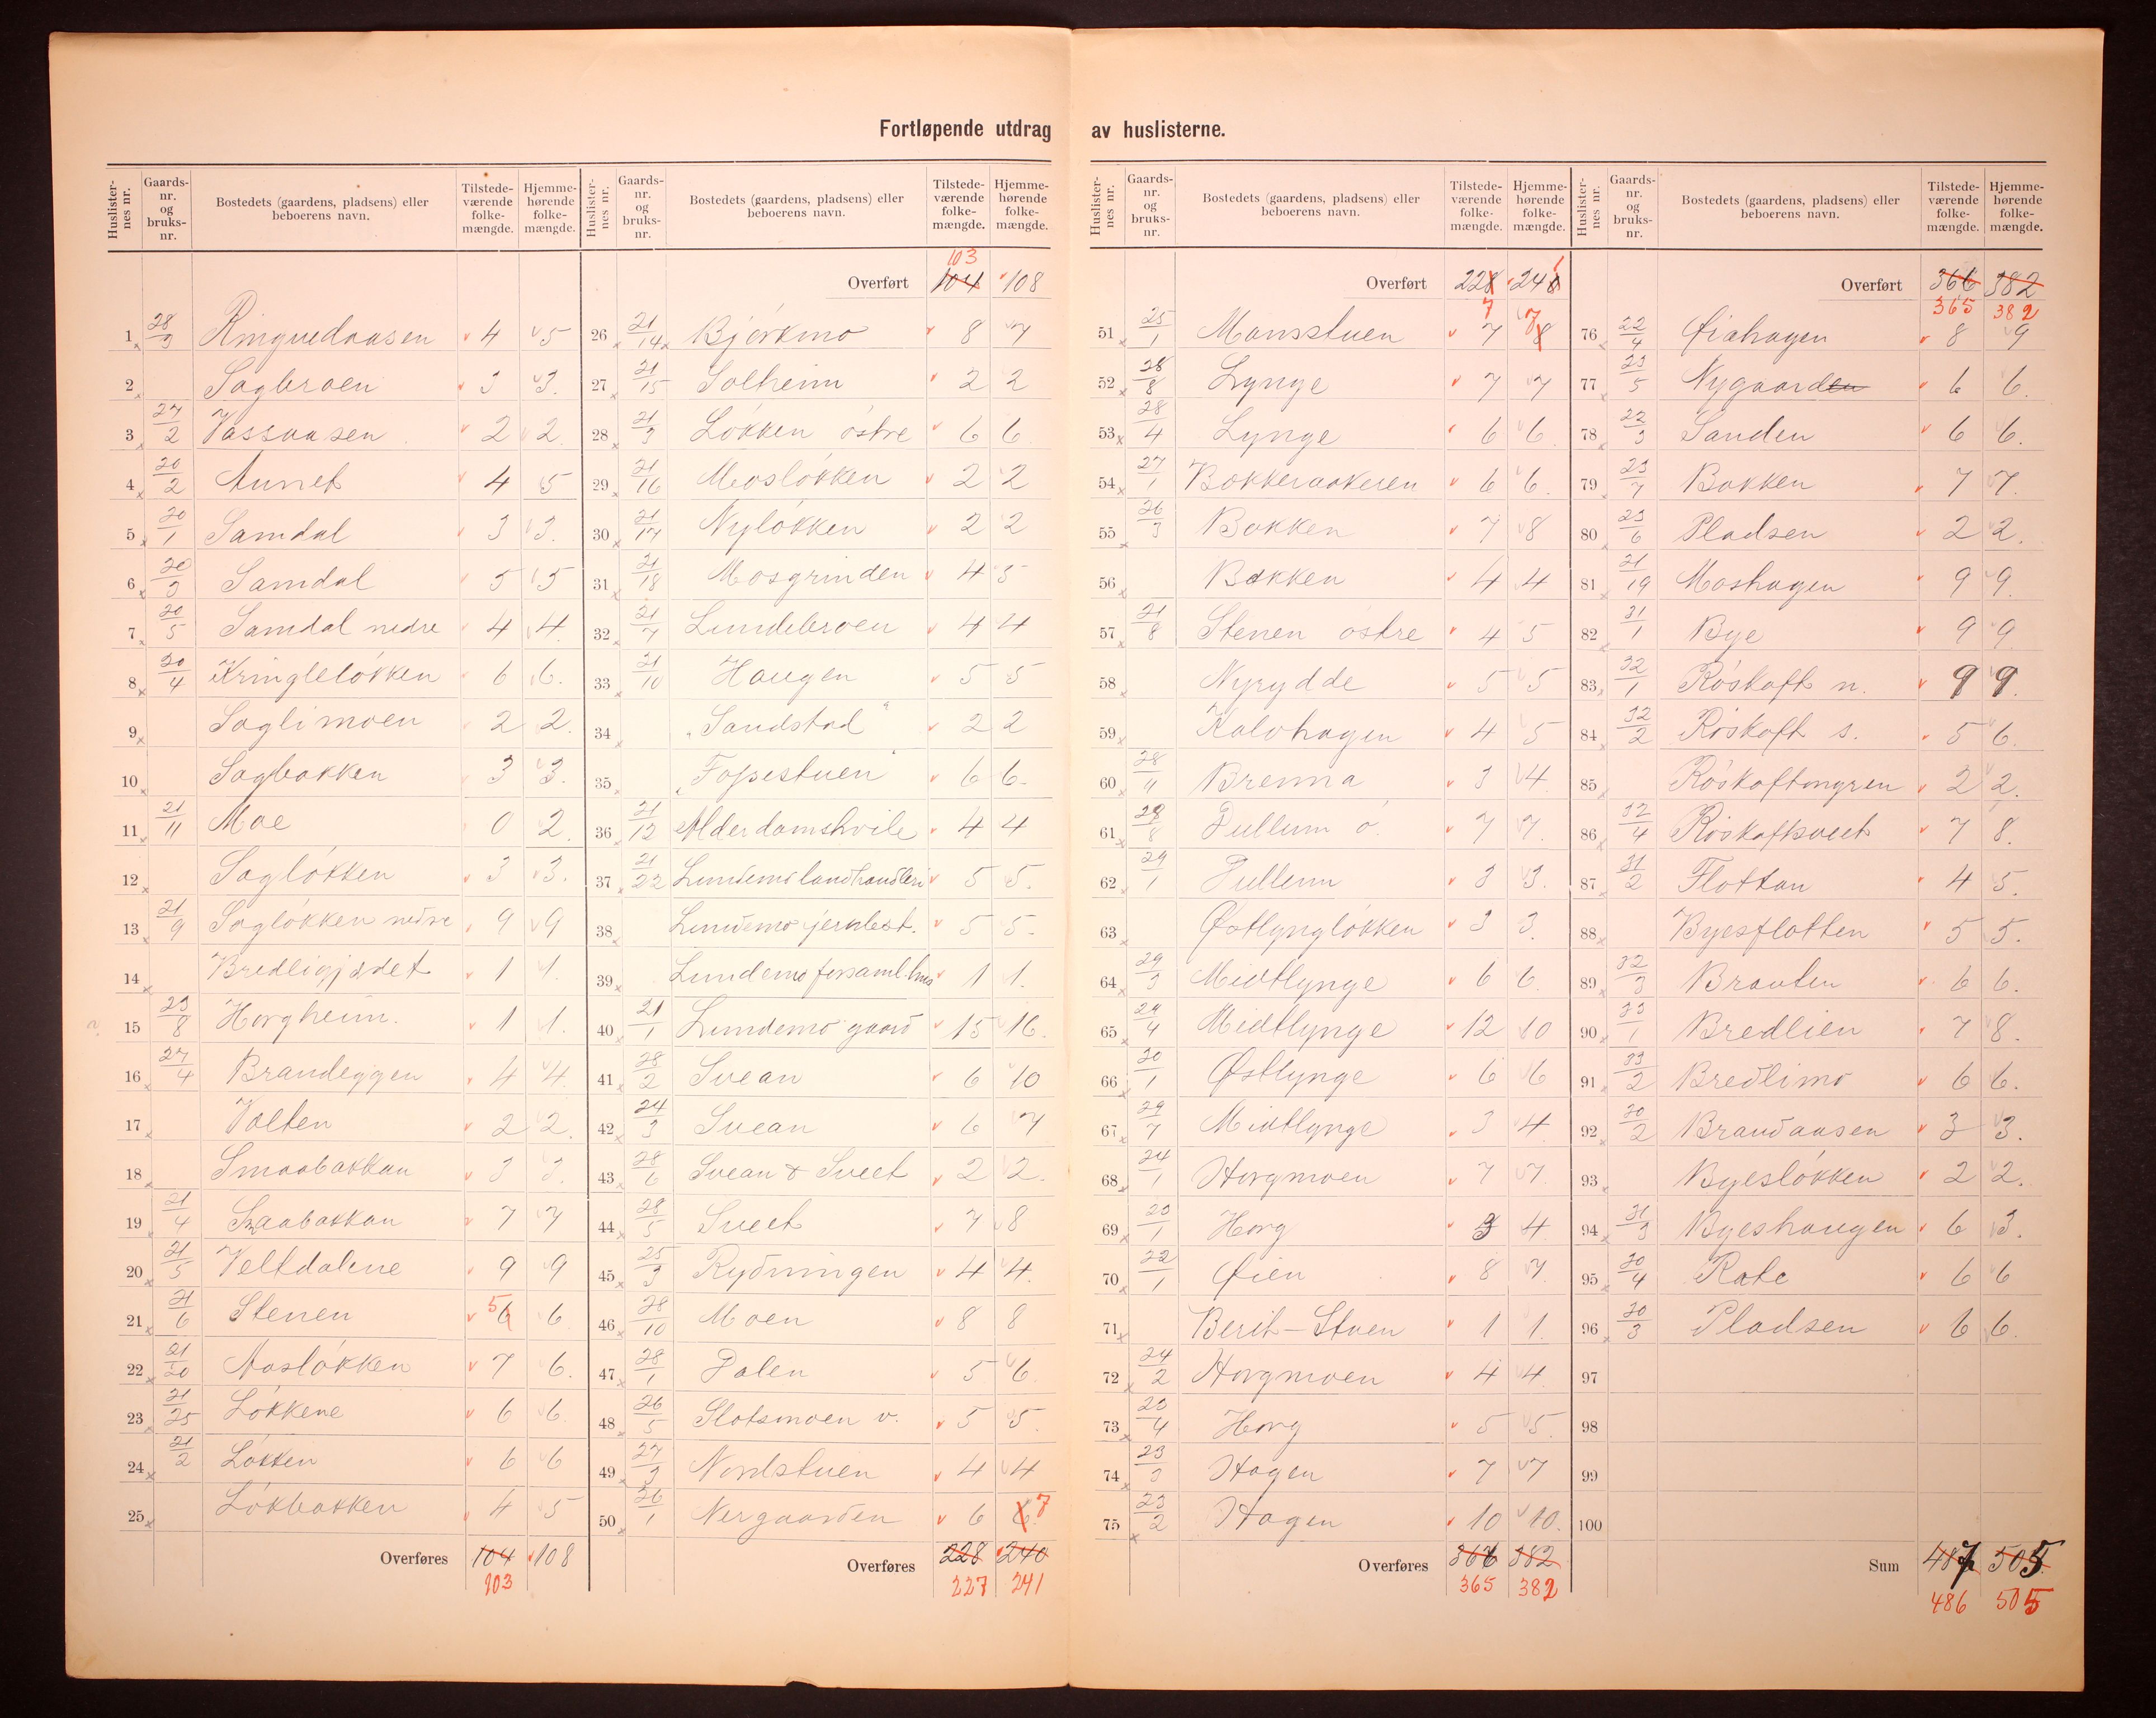 Fortløpende utdrag av huslisterne.
Huslisternes nr. Gaards-nr. og bruks-nr. Bostedets (gaardens, pladsens) eller beboerens navn. Tilstedeværende folkemængde. Hjemmehørende folkemængde.
1 28/3 Ringvedaasen 4 5
2 Sagbraen 3 3.
3 27/2 Vassaasen 2 2.
4 20/2 Aunet 4 5
5 20/1 Samdal 3 3.
6 20/3 Samdal 5 5
7 20/5 Samdal nedre 4 4.
8 20/4 Kringleløkken 6 6.
9 Saglimoen 2 2.
10 Sagbakken 3 3.
11 21/11 Moe 0 2.
12 Sagløkken 3 3.
13 21/9 Sagløkken nedre 9 9
14 Bredligjærdet 1 1.
15 23/8 Horgheim. 1 1.
16 27/4 Brandeggen 4 4.
17 Valten 2 2.
18 Smaabakkan 3 3.
19 21/4 Smaabakkan 7 7
20 21/5 Veltdalene 9 9
21 21/6 Stenen 6 5 6
22 21/20 Aasløkken 7 6.
23 21/25 Løkkene 6 6.
24 21/2 Løkken 6 6
25 Løkbakken 4 5
Overføres 104 108
103
Huslisternes nr. Gaards-nr. og bruks-nr. Bostedets (gaardens, pladsens) eller beboerens navn. Tilstedeværende folkemængde. Hjemmehørende folkemængde.
103
Overført 104 108
26 21/14 Bjørkmo 8 7
27 21/15 Solheim 2 2
28 21/3 Løkken østre 6 6.
29 21/16 Mosløkken 2 2
30 21/17 Nyløkken 2 2
31 21/18 Mosgrinden 4 5
32 21/7 Lundebroen 4 4
33 21/10 Haugen 5 5
34 "Sandstad" 2 2
35 "Fopestuen" 6 6.
36 21/12 Alderdomshvile 4 4
37 21/22 Lundemo landhandleri 5 5.
38 Lundemo jernbest. 5 5.
39 Lundemo forsaml.hus 1 1.
40 21/1 Lundemo gaard 15 16.
41 28/2 Svean 6 10
42 24/3 Svean 6 7
43 28/6 Svean & Sveet 2 2.
44 28/5 Sveet 7 8
45 25/3 Rydningen 4 4.
46 28/10 Moen 8 8
47 28/1 Dalen 5 6.
48 26/5 Slotsmoen v. 5 5.
49 27/3 Nordstuen 4 4
50 26/1 Nergaarden 6 6. 7
Overføres 228 240
227 241
Huslisternes nr. Gaards-nr. og bruks-nr. Bostedets (gaardens, pladsens) eller beboerens navn. Tilstedeværende folkemængde. Hjemmehørende folkemængde.
Overført 228 240
7 1
51 25/1 Mansstuen 7 8 7
52 28/8 Lynge 7 7
53 28/4 Lynge 6 6.
54 27/1 Bakkeraakeren 6 6.
55 26/3 Bakken 7 8
56 Bakken 4 4
57 21/8 Stenen østre 4 5
58 Nyrydde 5 5
59 Kalvhagen 4 5
60 28/11 Brenna 3 4.
61 29/8 Pullum ø. 7 7.
62 29/1 Pullum 3 3.
63 Østlyngløkken 3 3.
64 29/3 Midtlynge 6 6.
65 29/4 Midtlynge 12 10
66 30/1 Østlynge 6 6
67 29/7 Midtlynge 3 4.
68 24/1 Horgmoen 7 7.
69 23/1 Horg 3 4.
70 22/1 Øien 8 7.
71 Berit-Stuen 1 1.
72 24/2 Horgmoen 4 4.
73 23/4 Horg 5 5.
74 23/3 Hagen 7 7
75 23/2 Hagen 10 10.
Overføres 366 382
365 382
Huslisternes nr. Gaards-nr. og bruks-nr. Bostedets (gaardens, pladsens) eller beboerens navn. Tilstedeværende folkemængde. Hjemmehørende folkemængde.
Overført 366 382
365 382
76 22/4 Øiahagen 8 9
77 23/5 Nygaarden 6 6.
78 22/3 Sanden 6 6.
79 23/7 Bakken 7 7.
80 23/6 Pladsen 2 2.
81 21/19 Moshagen 9 9.
82 31/1 Bye 9 9.
83 32/1 Røskaft n. 9 9.
84 32/2 Røskaft s. 5 6.
85 Røskaftmyren 2 2.
86 32/4 Røskaftsveet 7 8.
87 31/2 Flottan 4 5.
88 Byesflotten 5 5.
89 32/3 Brauten 6 6.
90 33/1 Bredlien 7 8.
91 33/2 Bredlimo 6 6.
92 30/2 Brandaasen 3 3.
93 Byesløkken 2 2.
94 31/3 Byeshaugen 6 3.
95 30/4 Rate 6 6
96 30/3 Pladsen 6 6.
97
98
99
100
Sum 487 505
486 505